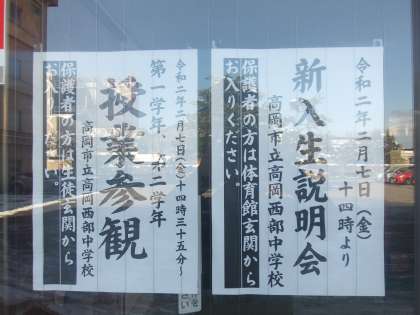 令和二年二月七日(金)
十四時より
新入生説明会
高岡市立高岡西部中学校
保護者の方は体育館玄関から
お入りください。
令和二年二月七日(金)十四時三十五分~
第一学年、第二学年
授業参観
高岡市立高岡西部中学校
保護者の方は生徒玄関から
お入りください。